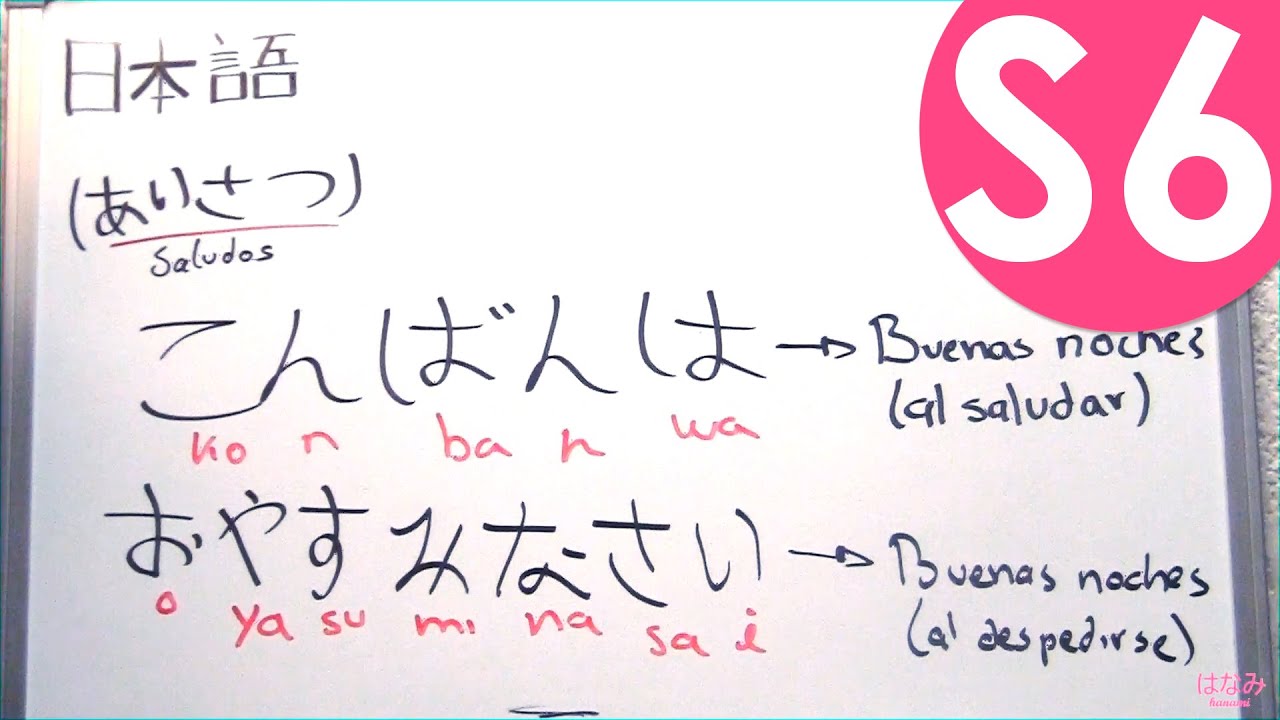 日本語
(あいさつ)
Saludos
こんばんは → Buenas noches
(al saludar)
ko n ba n wa
おやすみなさい → Buenas noches
(al despedirse)
o ya su mi na sa i
S6
はなみ
hanami